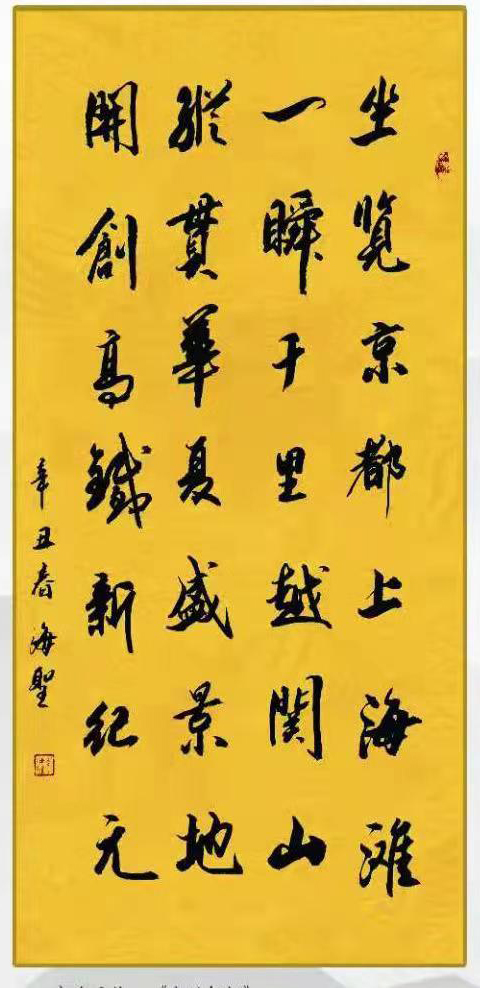 坐览京都上海滩
一瞬千里越関山
縱貫華夏盛景地
開創高鐵新纪元
辛丑春海聖